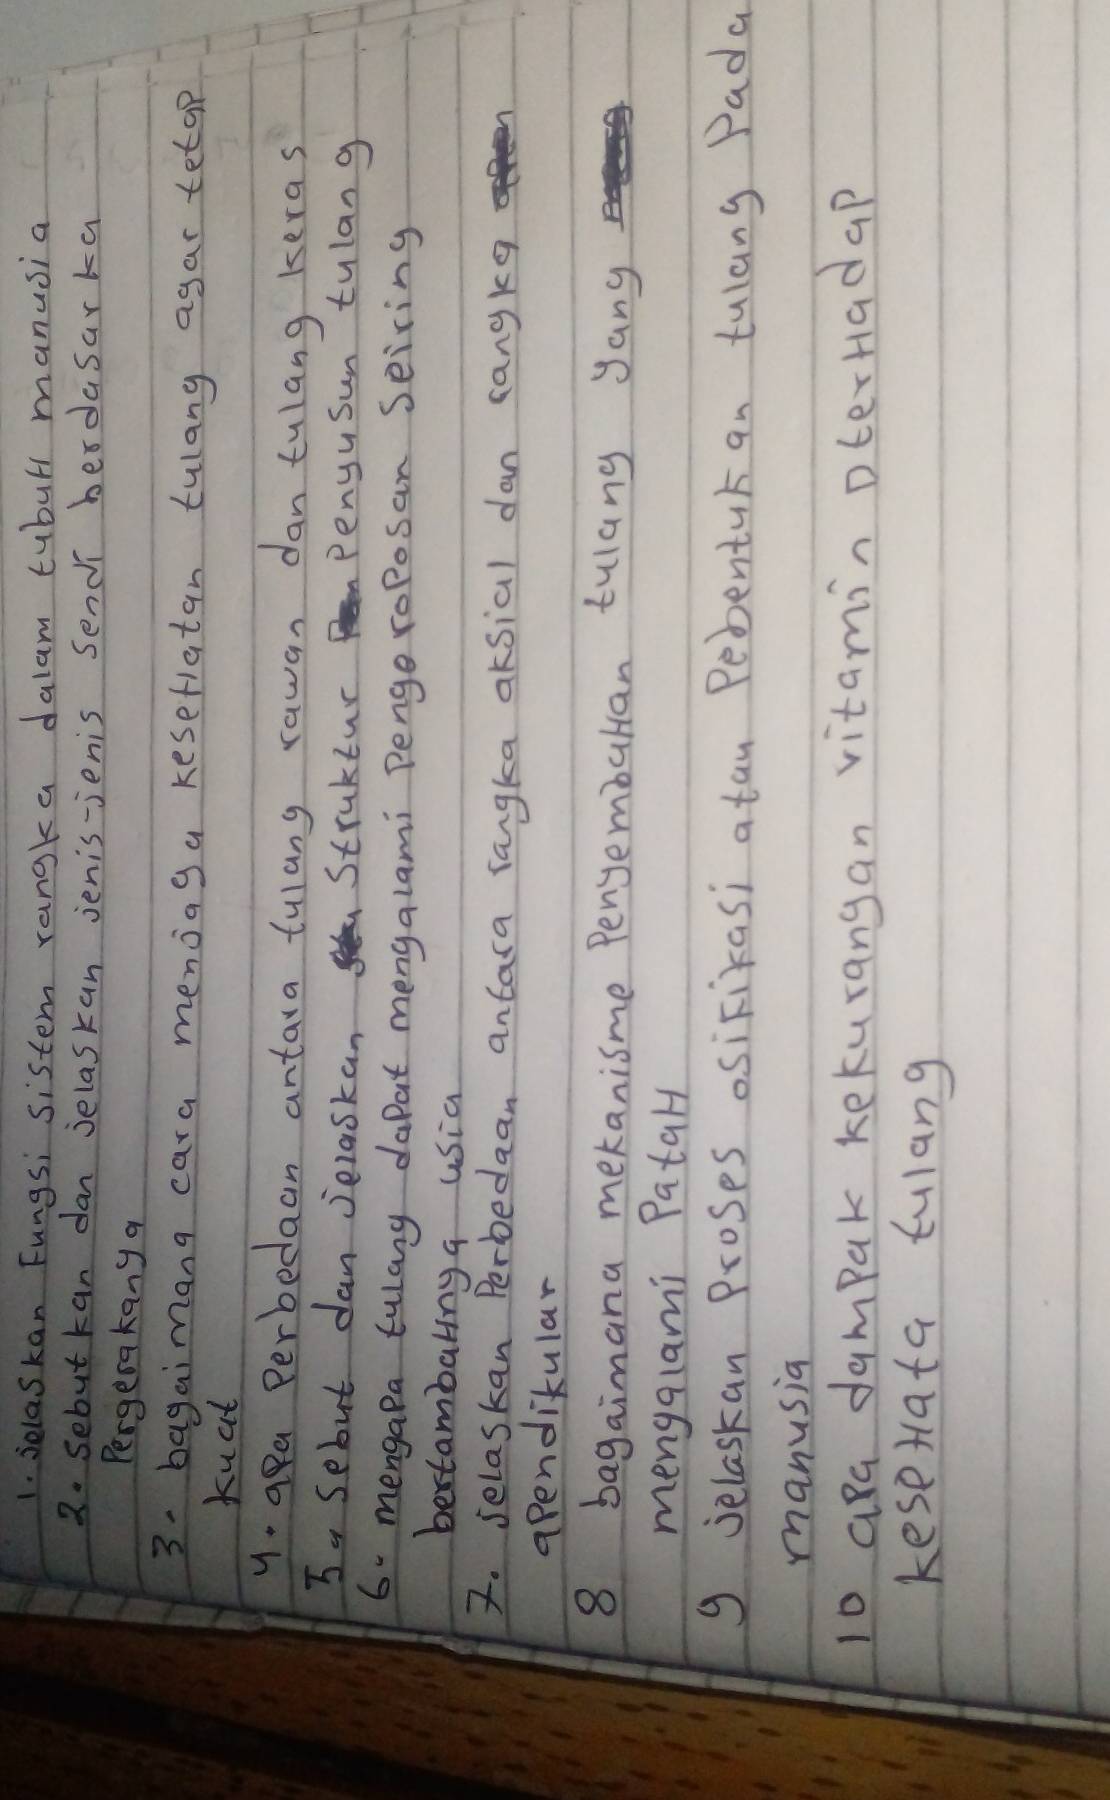 1. jelaskan Fungsi sistem rangka dalam tubuH manusia
2. sebutkan dan jelaskan jenis-jenis sendi berdasarka
Pergerakanya
3. bagaimana cara menjaga keseHatan tulang agar tetap
kuat
4. apa Perbedaan antara tulang rawan dan tulang keras
5. Sebut dan jelaskan Struktur Penyusun tulang
6. mengapa tulang dapat mengalami Pengeroposan seiring
bertambaHnya usia
7. jelaskan Perbedaan antara rangka aksial dan rangka
apendikular
8 bagaimana mekanisme PenyembuHan tulang yang
mengalami PataH
9 jelaskan Proses osifikasi atau Pebentukan tulang Pada
manusia
10 apa dampak kekurangan vitamin D terHadap
keseHata tulang